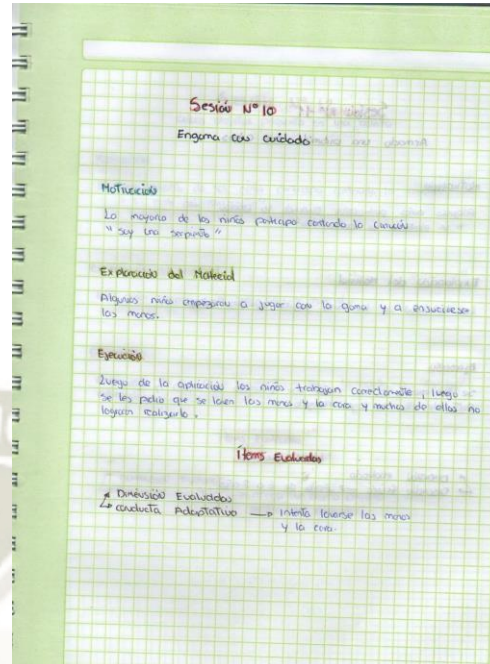 Sesión N° 10
Engoma con cuidado
Motivación
La mayoria de los niños participo cantando la canción
" Soy una serpiente "
Exploración del Material
Algunos niños empezaron a jugar con la goma y a ensuciarse
las manos.
Ejecución
Luego de la explicación los niños trabajan correctamente, luego
se les pidio que se laven las manos y la cara y muchos de ellos no
logran realizarlo.
Ítems Evaluados
Dimensión Evaluada
conducta Adaptativa → Intenta lavarse las manos
y la cara.